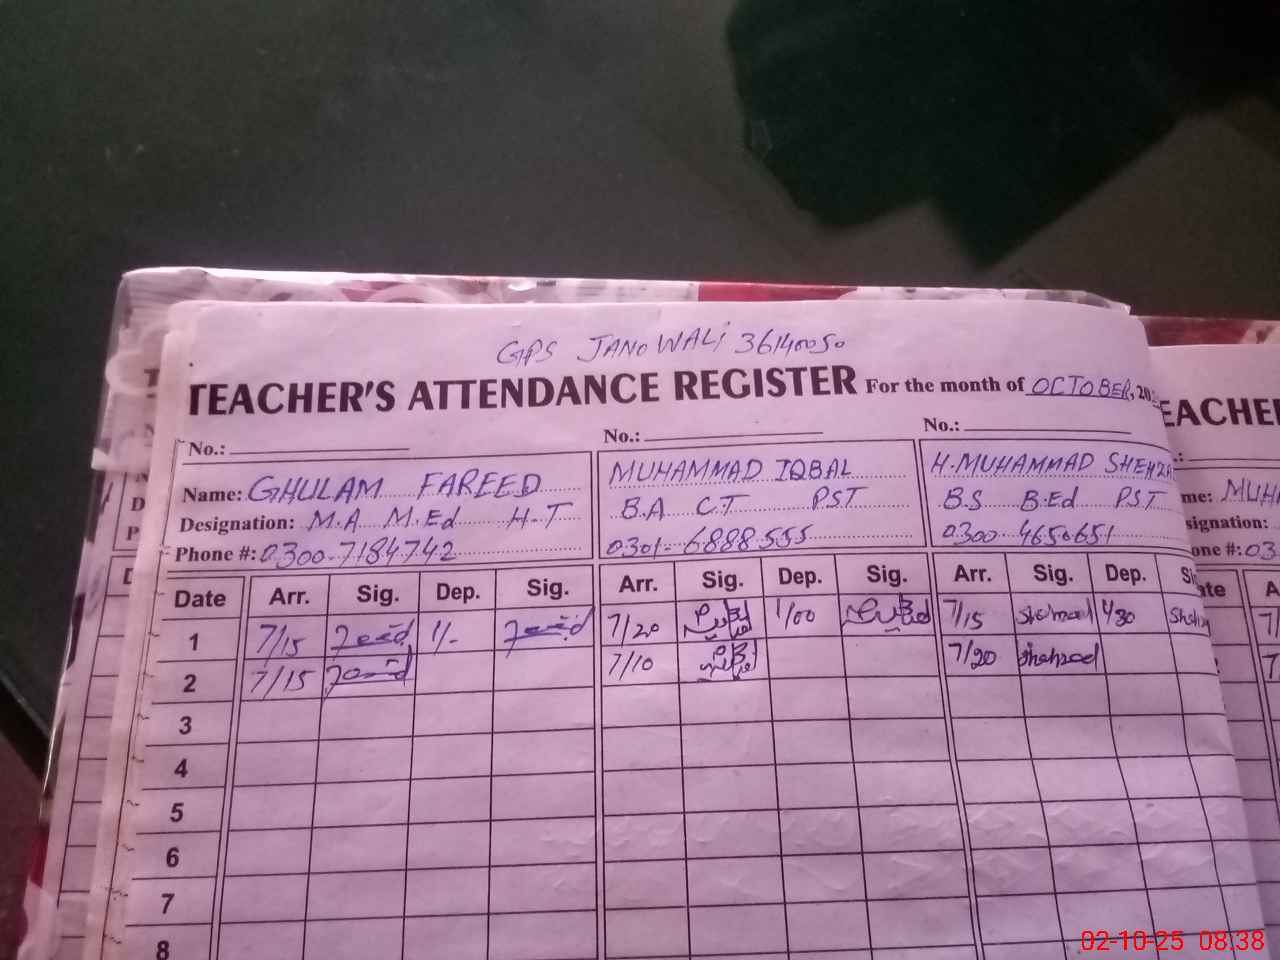 GPS JANOWALI 36140050
TEACHER'S ATTENDANCE REGISTER For the month of OCTOBER, 202
No.:
No.:
No.:
Name: GHULAM FAREED
Designation: M.A M.Ed H.T
Phone #: 0300-7184742
MUHAMMAD IQBAL
B.A C.T PST
0301-6888555
H.MUHAMMAD SHEHZA
B.S B.Ed PST
0300 4650651
Date Arr. Sig. Dep. Sig. Arr. Sig. Dep. Sig. Arr. Sig. Dep. Si
1 7/15 1/- 7/20 1/00 7/15 Shehzad 1/30
2 7/15 7/10 7/20 Shehzad
3
4
5
6
7
8
EACHE
me: MUH
signation:
one #: 03
ate A
02-10-25 08:38